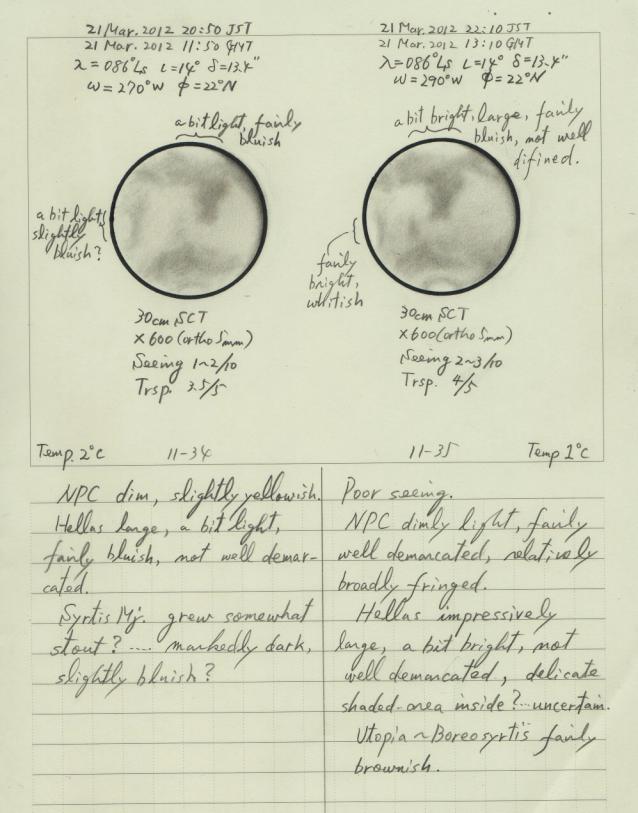 21 Mar. 2012 20:50 JST
21 Mar. 2012 11:50 GMT
λ=086°Ls ι=14° δ=13.4"
ω=270°W φ=22°N
a bit light, fairly
bluish
a bit light,
slightly
bluish?
30cm SCT
×600 (ortho 5mm)
Seeing 1~2/10
Trsp. 3.5/5
Temp. 2°C
11-34
21 Mar. 2012 22:10 JST
21 Mar. 2012 13:10 GMT
λ=086°Ls ι=14° δ=13.4"
ω=290°W φ=22°N
a bit bright, large, fairly
bluish, not well
difined.
fairly
bright,
whitish
30cm SCT
×600 (ortho 5mm)
Seeing 2~3/10
Trsp. 4/5
11-35
Temp 1°C
NPC dim, slightly yellowish.
Hellas large, a bit light,
fairly bluish, not well demar-
cated.
Syrtis Mj. grew somewhat
stout? .... markedly dark,
slightly bluish?
Poor seeing.
NPC dimly light, fairly
well demarcated, relatively
broadly fringed.
Hellas impressively
large, a bit bright, not
well demarcated, delicate
shaded-area inside?...uncertain.
Utopia ~ Boreosyrtis fairly
brownish.